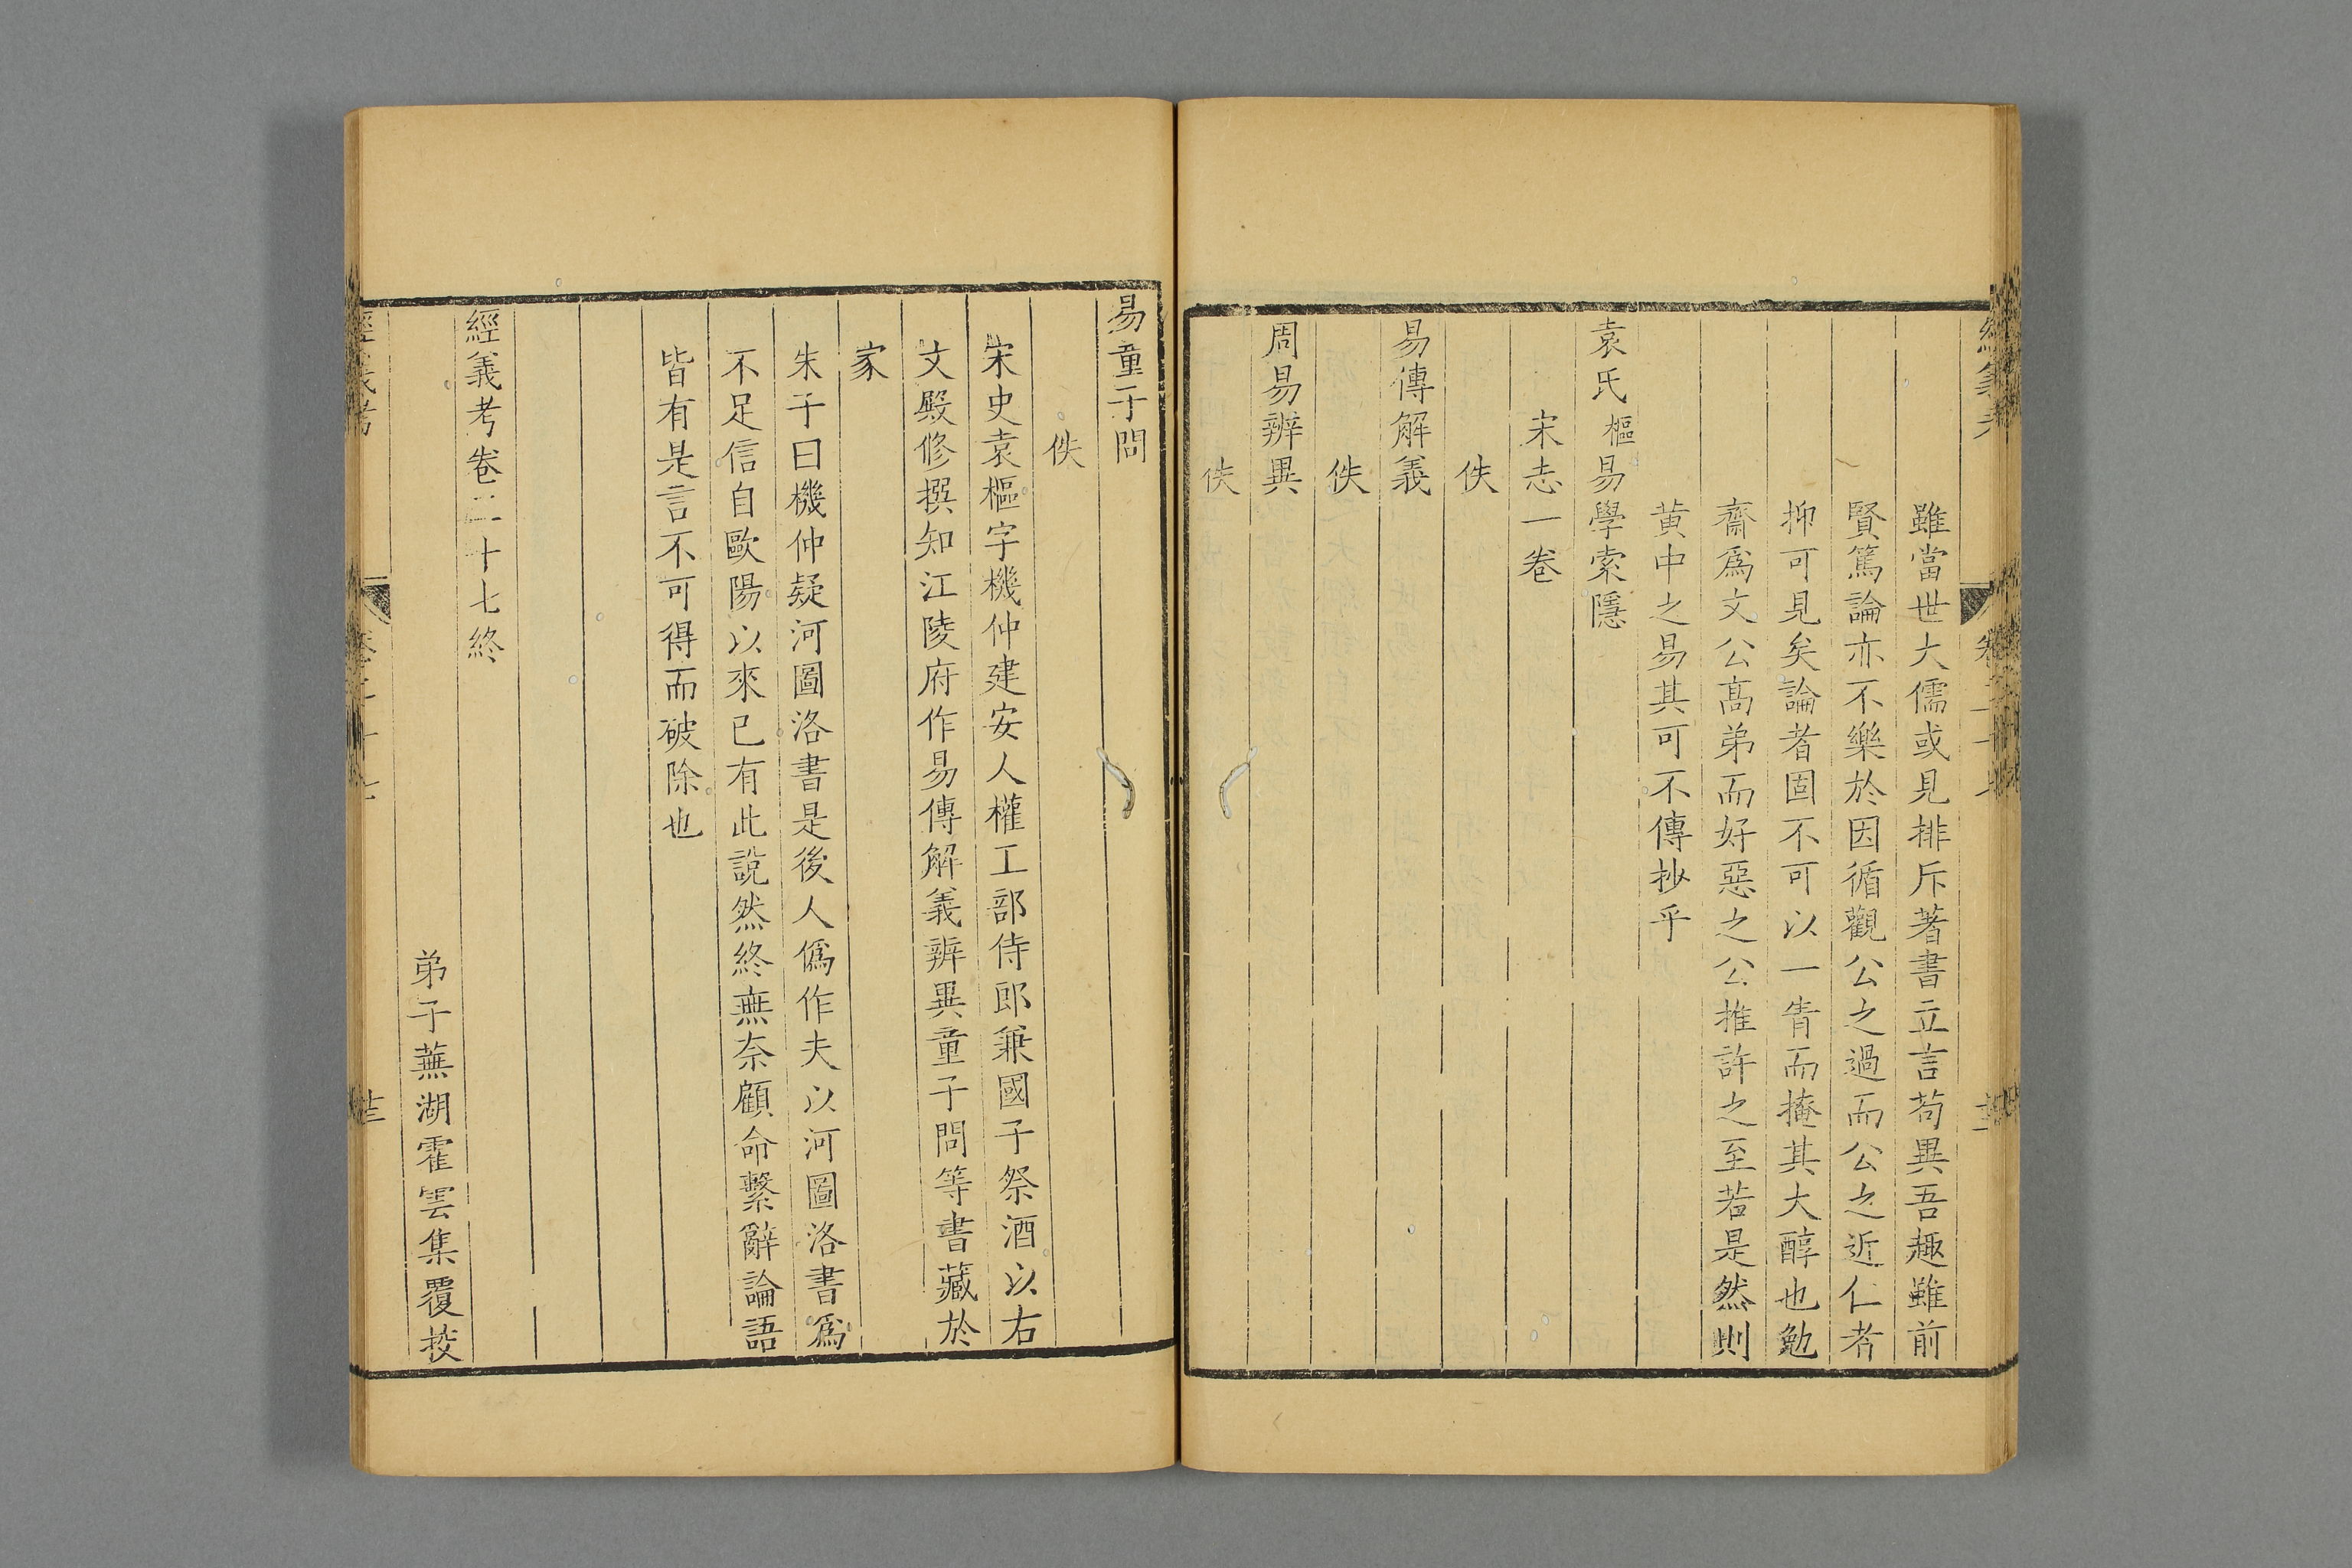 雖當世大儒或見排斥著書立言苟異吾趣雖前
賢篤論亦不樂於因循觀公之過而公之近仁者
抑可見矣論者固不可以一眚而掩其大醇也勉
齋爲文公高弟而好惡之公推許之至若是然則
黄中之易其可不傳抄乎
袁氏樞易學索隱
宋志一卷
佚
易傳解義
佚
周易辨異
佚
易童子問
佚
宋史袁樞字機仲建安人權工部侍郎兼國子祭酒以右
文殿修撰知江陵府作易傳解義辨異童子問等書藏於
家
朱子曰機仲疑河圖洛書是後人僞作夫以河圖洛書爲
不足信自歐陽以來已有此說然終無奈顧命繫辭論語
皆有是言不可得而破除也
經義考卷二十七終
弟子蕪湖霍雲集覆挍